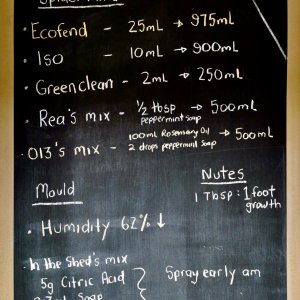 • Ecofend - 25mL → 975mL
• Iso - 10mL → 900mL
• Greenclean - 2mL → 250mL
• Rea's mix - ½ tbsp peppermint soap → 500mL
• O13's mix - 100mL Rosemary Oil
2 drops peppermint soap → 500mL
Notes
1 Tbsp : 1 foot
growth
Mould
• Humidity 62% ↓
• In the Shed's mix
5g Citric Acid
Spray early am
Soap